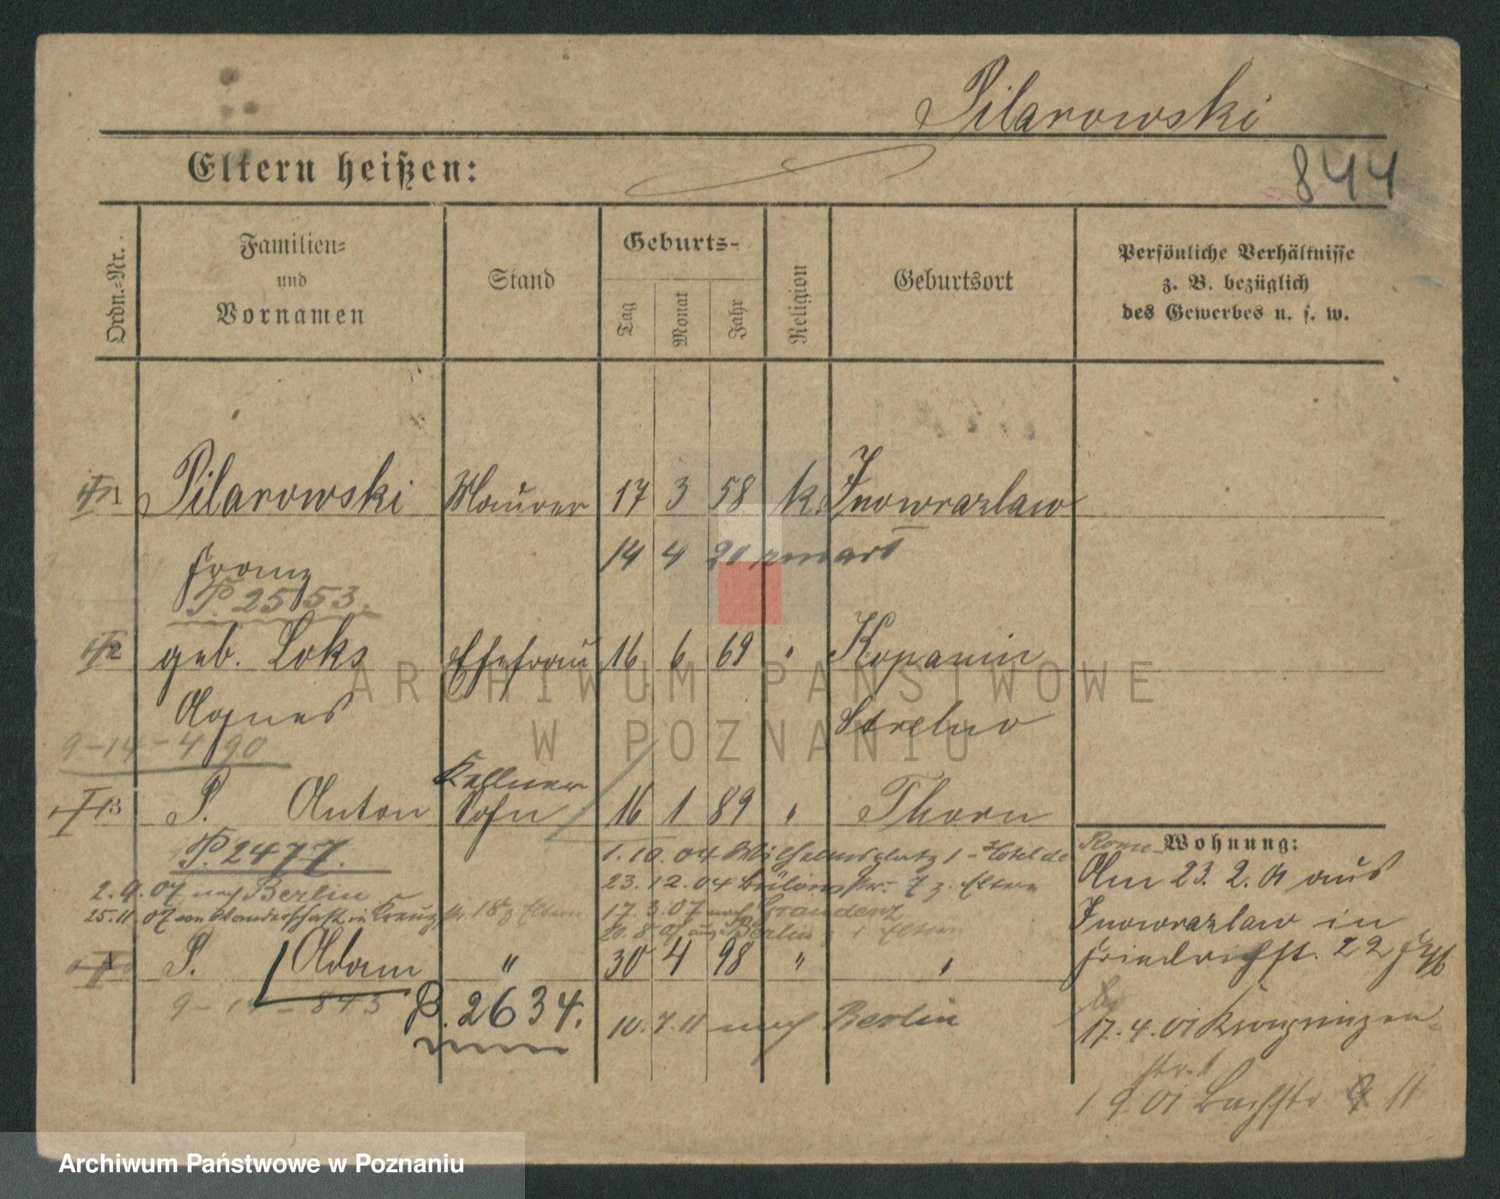 Pilarowski
844
Eltern heißen:
Ordn.-Nr.
Familien- und Vornamen
Stand
Geburts-
Tag
Monat
Jahr
Religion
Geburtsort
Persönliche Verhältnisse
z. B. bezüglich
des Gewerbes u. s. w.
1 Pilarowski Maurer 17 3 58 k. Inowrazlaw
14 4 20
Franz
P. 2553.
2 geb. Loks Ehefrau 16 6 69 " Kopanin
Agnes Strelno
9-14-4 90
Kellner
3 P. Anton Sohn 16 1 89 " Thorn
P. 2477.
1.10.04 Wilhelmsplatz 1 - Hotel de Rome
23.12.04 str. 7 z. Eltern
2.9.07 nach Berlin
17.3.07 nach Graudenz
25.11.07 von Wanderschaft in Kreuzstr. 18 z. Eltern
20.8.07 aus Berlin z. Eltern
P. Adam " 30 4 98 " "
9-14-843
P. 2634.
10.7.11 nach Berlin
Wohnung:
Am 23.2.01 aus
Inowrazlaw in
Friedrichst. 22
17.4.01
str.
1 9.01 Bachstr. 11
ARCHIWUM PAŃSTWOWE
W POZNANIU
Archiwum Państwowe w Poznaniu